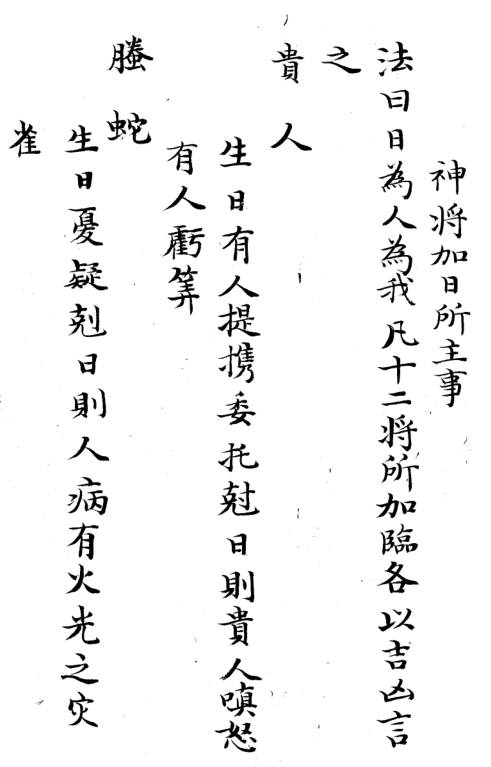 神將加日所主事
法曰日為人為我凡十二將所加臨各以吉凶言
之
貴人
生日有人提携委托尅日則貴人嗔怒
有人虧筭
螣蛇
生日憂疑尅日則人病有火光之灾
雀